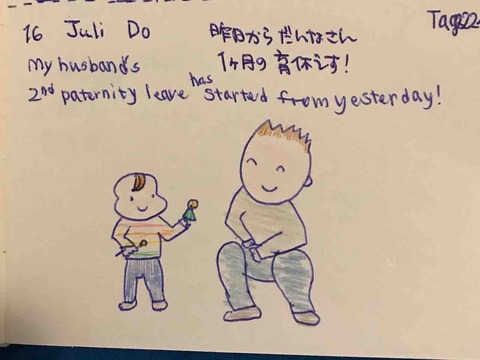 16 Juli Do
昨日からだんなさん
1ヶ月の育休です!
Tag
My husband's
2nd paternity leave has started from yesterday!